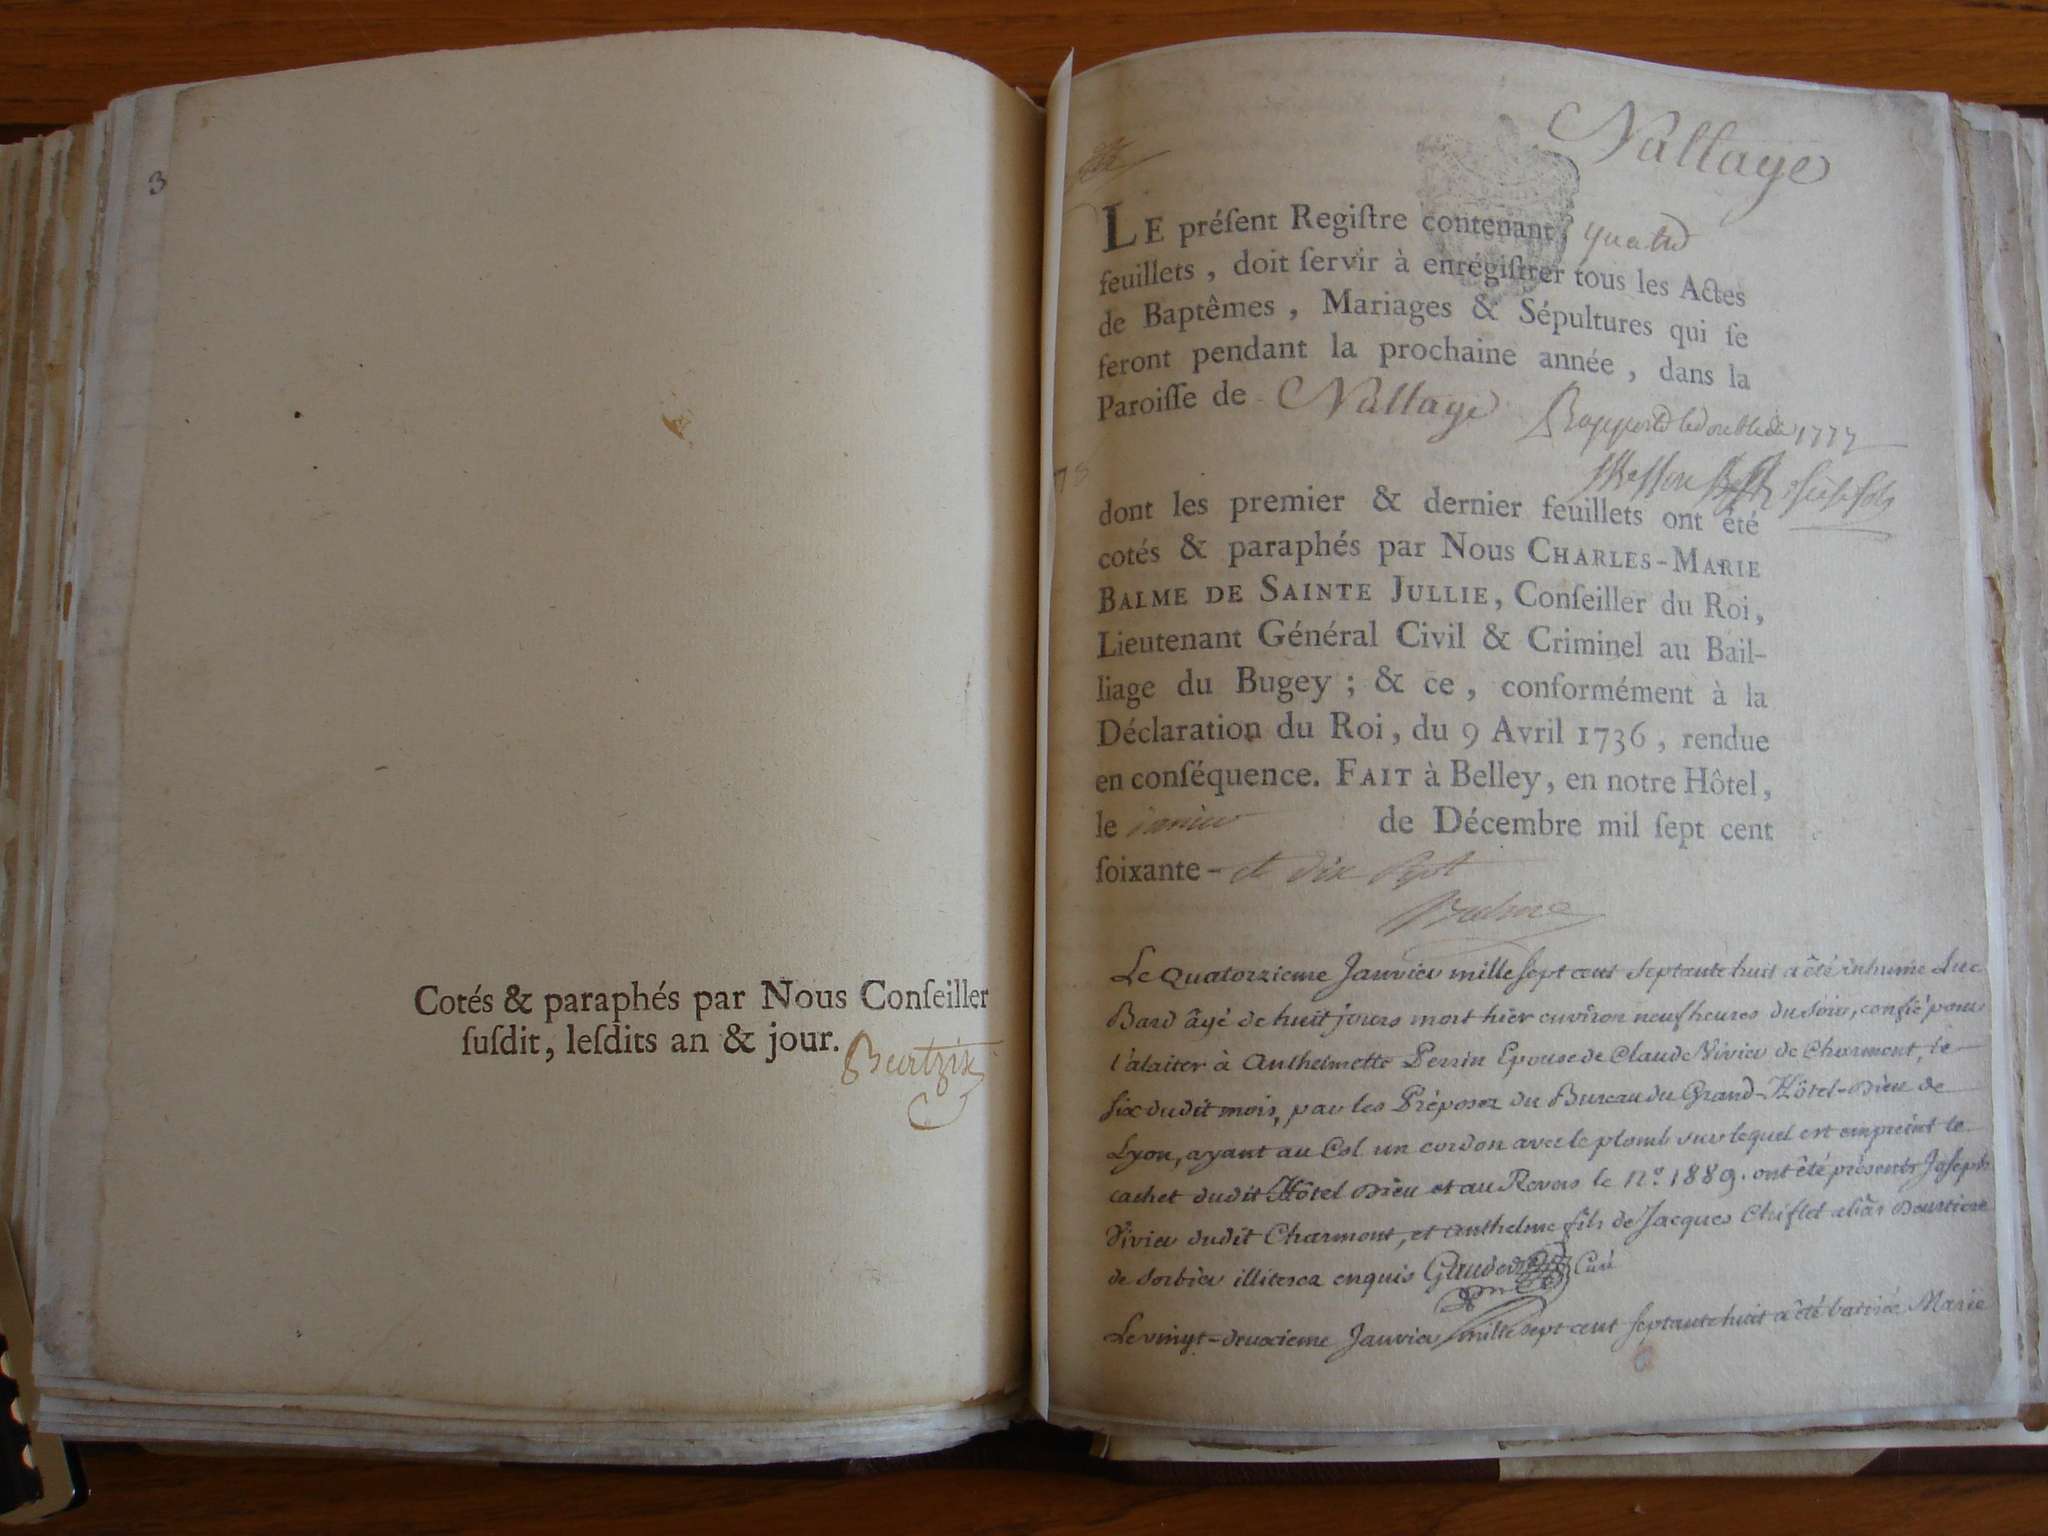 3
Cotés & paraphés par Nous Conſeiller
ſuſdit, leſdits an & jour.
Nattage
LE préſent Regiſtre contenant quatre
feuillets, doit ſervir à enrégiſtrer tous les Actes
de Baptêmes, Mariages & Sépultures qui ſe
feront pendant la prochaine année, dans la
Paroiſſe de Nattage
Rapporté le double de 1777
dont les premier & dernier feuillets ont été
cotés & paraphés par Nous CHARLES-MARIE
BALME DE SAINTE JULLIE, Conſeiller du Roi,
Lieutenant Général Civil & Criminel au Bail-
liage du Bugey ; & ce, conformément à la
Déclaration du Roi, du 9 Avril 1736, rendue
en conſéquence. FAIT à Belley, en notre Hôtel,
le de Décembre mil ſept cent
ſoixante - et dix sept
Balme
Le quatorzieme Janvier mille sept cent septante huit a êté inhumé Luc
Bard âgé de huit jours mort hier environ neuf heures du soir, confié pour
l'alaiter à Anthelmette Perrin Epouse de Claude Vivier de Charmont, le
six dudit mois, par les Préposez du Bureau du Grand-Hôtel-Dieu de
Lyon, ayant au Col un cordon avec le plomb sur lequel est empreint le
cachet dudit Hôtel Dieu et au Revers le n.º 1889. ont êté présents Joseph
Vivier dudit Charmont, et anthelme fils de Jacques Chiflet aliàs
de Sorbier illiterez enquis Curé
Le vingt-deuxieme Janvier mille sept cent septante huit a êté batisée Marie